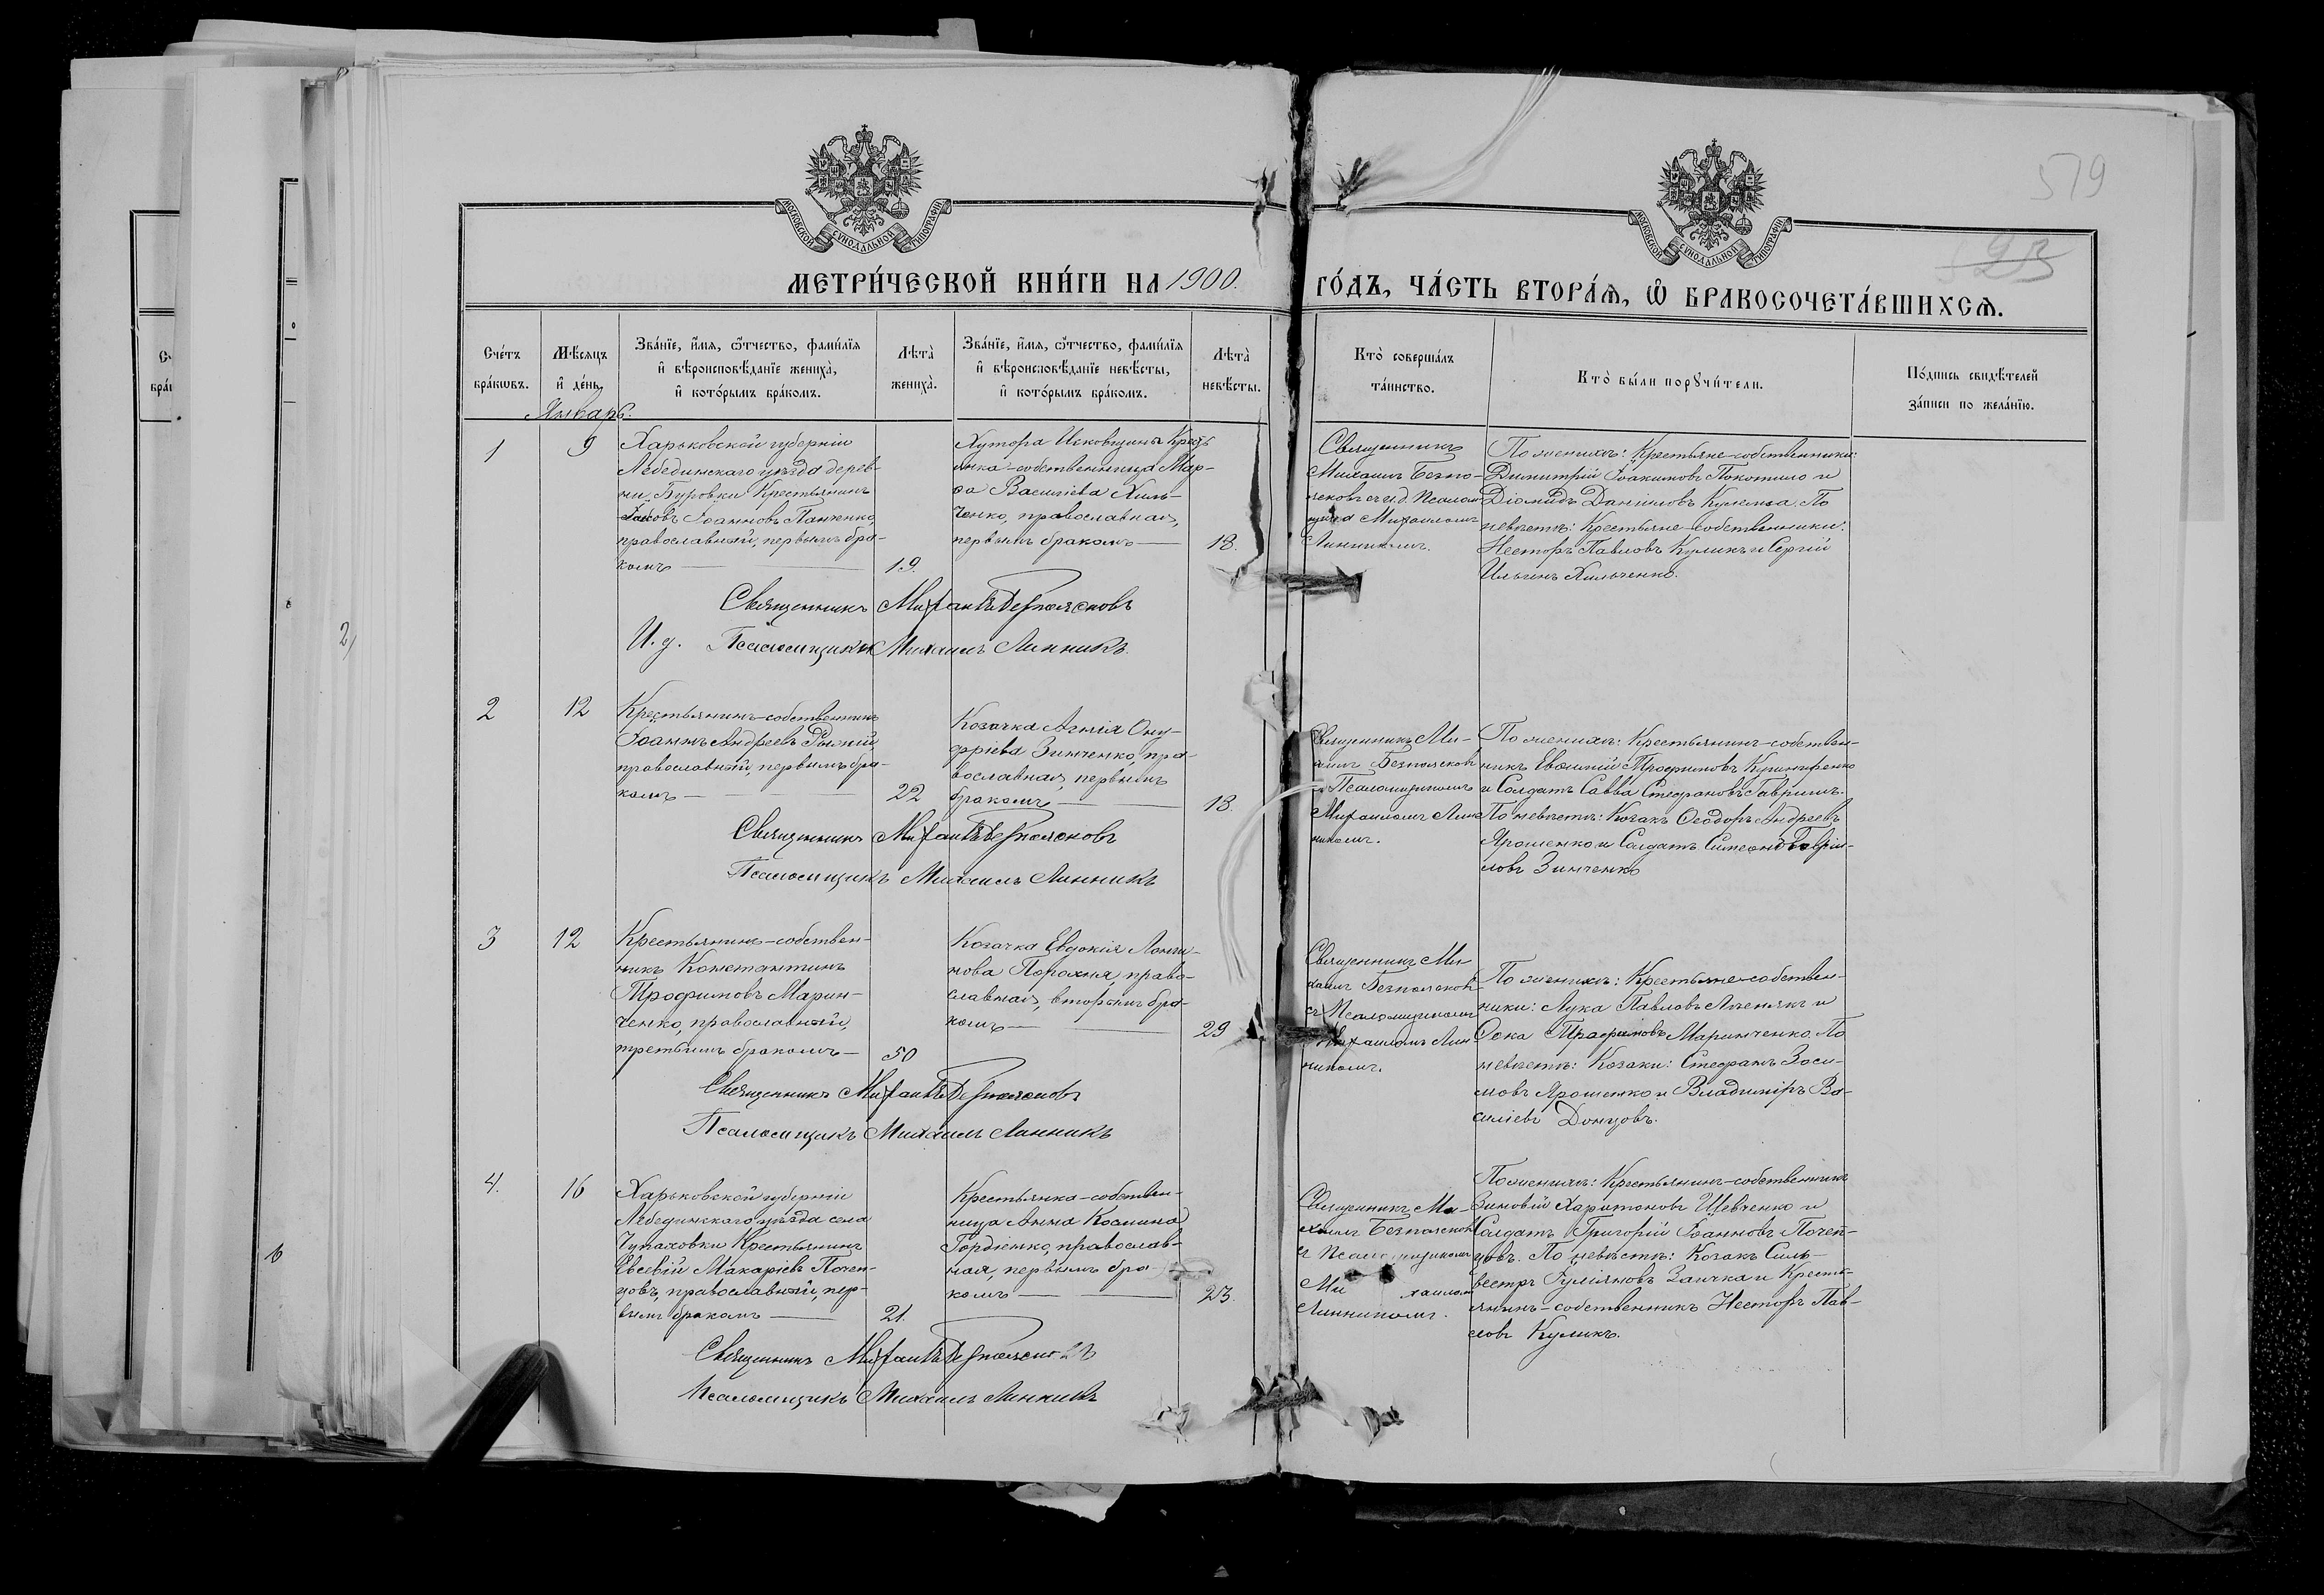 519
МОСКОВСКОЙ СѴНОДАЛЬНОЙ ТИПОГРАФІИ
МОСКОВСКОЙ СѴНОДАЛЬНОЙ ТИПОГРАФІИ
МЕТРИ́ЧЕСКОЙ КНИ́ГИ НА 1900. ГО́ДЪ, ЧА́СТЬ ВТОРА́Ѧ, Ѽ БРАКОСОЧЕТА́ВШИХСѦ.
Сче́тъ
бра́кѡвъ.
Мѣ́сяцъ
и҆ де́нь.
Зва́нїе, и҆́мѧ, ѻ҆́тчество, фами́лїѧ
и҆ вѣроисповѣ́данїе жениха̀,
и҆ кото́рымъ бра́комъ.
Лѣта̀
жениха̀.
Зва́нїе, и҆́мѧ, ѻ҆́тчество, фами́лїѧ
и҆ вѣроисповѣ́данїе невѣ́сты,
и҆ кото́рымъ бра́комъ.
Лѣта̀
невѣ́сты.
Кто̀ соверша́лъ
та́инство.
Кто̀ бы́ли порꙋчи́тели.
По́дпись свидѣ́телей
за́писи по жела́нїю.
Январь.
1
9
Харьковской губерніи
Лебединскаго уѣзда дерев-
ни Буровки Крестьянинъ
Іаковъ Іоанновъ Панченко,
православный, первымъ бра-
комъ
19.
Хутора Исковщины Кресть
янка-собственница Мар-
ѳа Василіева Хиль-
ченко, православная,
первымъ бракомъ
18.
Священникъ
Михаилъ Безпо-
ясковъ съ и.д. Псалом-
щика Михаиломъ
Линникомъ.
По женихѣ: Крестьяне-собственники:
Димитрій Іоакимовъ Покотило и
Діомидъ Даніиловъ По
невѣстѣ: Крестьяне-собственники:
Несторъ Павловъ Куликъ и Сергій
Ильинъ Хильченко.
Священникъ Михаилъ Безпоясковъ
И.д. Псаломщика Михаилъ Линникъ.
2
12
Крестьянинъ-собственникъ
Іоаннъ Андреевъ Рыжій,
православный, первымъ бра-
комъ
22
Козачка Агнія Ону-
фріева Зинченко, пра-
вославная, первымъ
бракомъ
18.
Священникъ Ми-
хаилъ Безпоясковъ
съ Псаломщикомъ
Михаиломъ Лин-
никомъ.
По женихѣ: Крестьянинъ-собствен-
никъ Евѳимій Трофимовъ
и Солдатъ Савва Стефановъ Гавришъ.
По невѣстѣ: Козакъ Ѳеодоръ Андреевъ
Ярошенко и Солдатъ Симеонъ Гаврии-
ловъ Зинченко
Священникъ Михаилъ Безпоясковъ
Псаломщикъ Михаилъ Линникъ
3
12
Крестьянинъ-собствен-
никъ Константинъ
Трофимовъ Марин-
ченко, православный,
третьимъ бракомъ
50
Козачка Евдокія Лонги-
нова Порохня, право-
славная, вторымъ бра-
комъ
29
Священникъ Ми-
хаилъ Безпоясковъ
съ Псаломщикомъ
Михаиломъ Лин-
никомъ.
По женихѣ: Крестьяне-собствен-
ники: Лука Павловъ и
Ѳока Трофимовъ Маринченко. По
невѣстѣ: Козаки: Стефанъ Зоси-
мовъ Ярошенко и Владиміръ Ва-
силіевъ Донцовъ.
Священникъ Михаилъ Безпоясковъ
Псаломщикъ Михаилъ Линникъ
4.
16
Харьковской губерніи
Лебединскаго уѣзда села
Чупаховки Крестьянинъ
Евсевій Макаріевъ Почеп-
цовъ, православный, пер-
вымъ бракомъ
21.
Крестьянка-собствен-
ница Анна Космина
Гордіенко, православ-
ная, первымъ бра-
комъ
23.
Священникъ Ми-
хаилъ Безпоясковъ
съ Псаломщикомъ
Михаиломъ
Линникомъ.
По женихѣ: Крестьянинъ-собственникъ
Зиновій Харитоновъ Шевченко и
Солдатъ Григорій Іоанновъ Почеп-
цовъ. По невѣстѣ: Козакъ Силь-
вестръ Іуліяновъ Заичка и Кресть-
янинъ-собственникъ Несторъ Пав-
ловъ Куликъ.
Священникъ Михаилъ Безпоясковъ
Псаломщикъ Михаилъ Линникъ